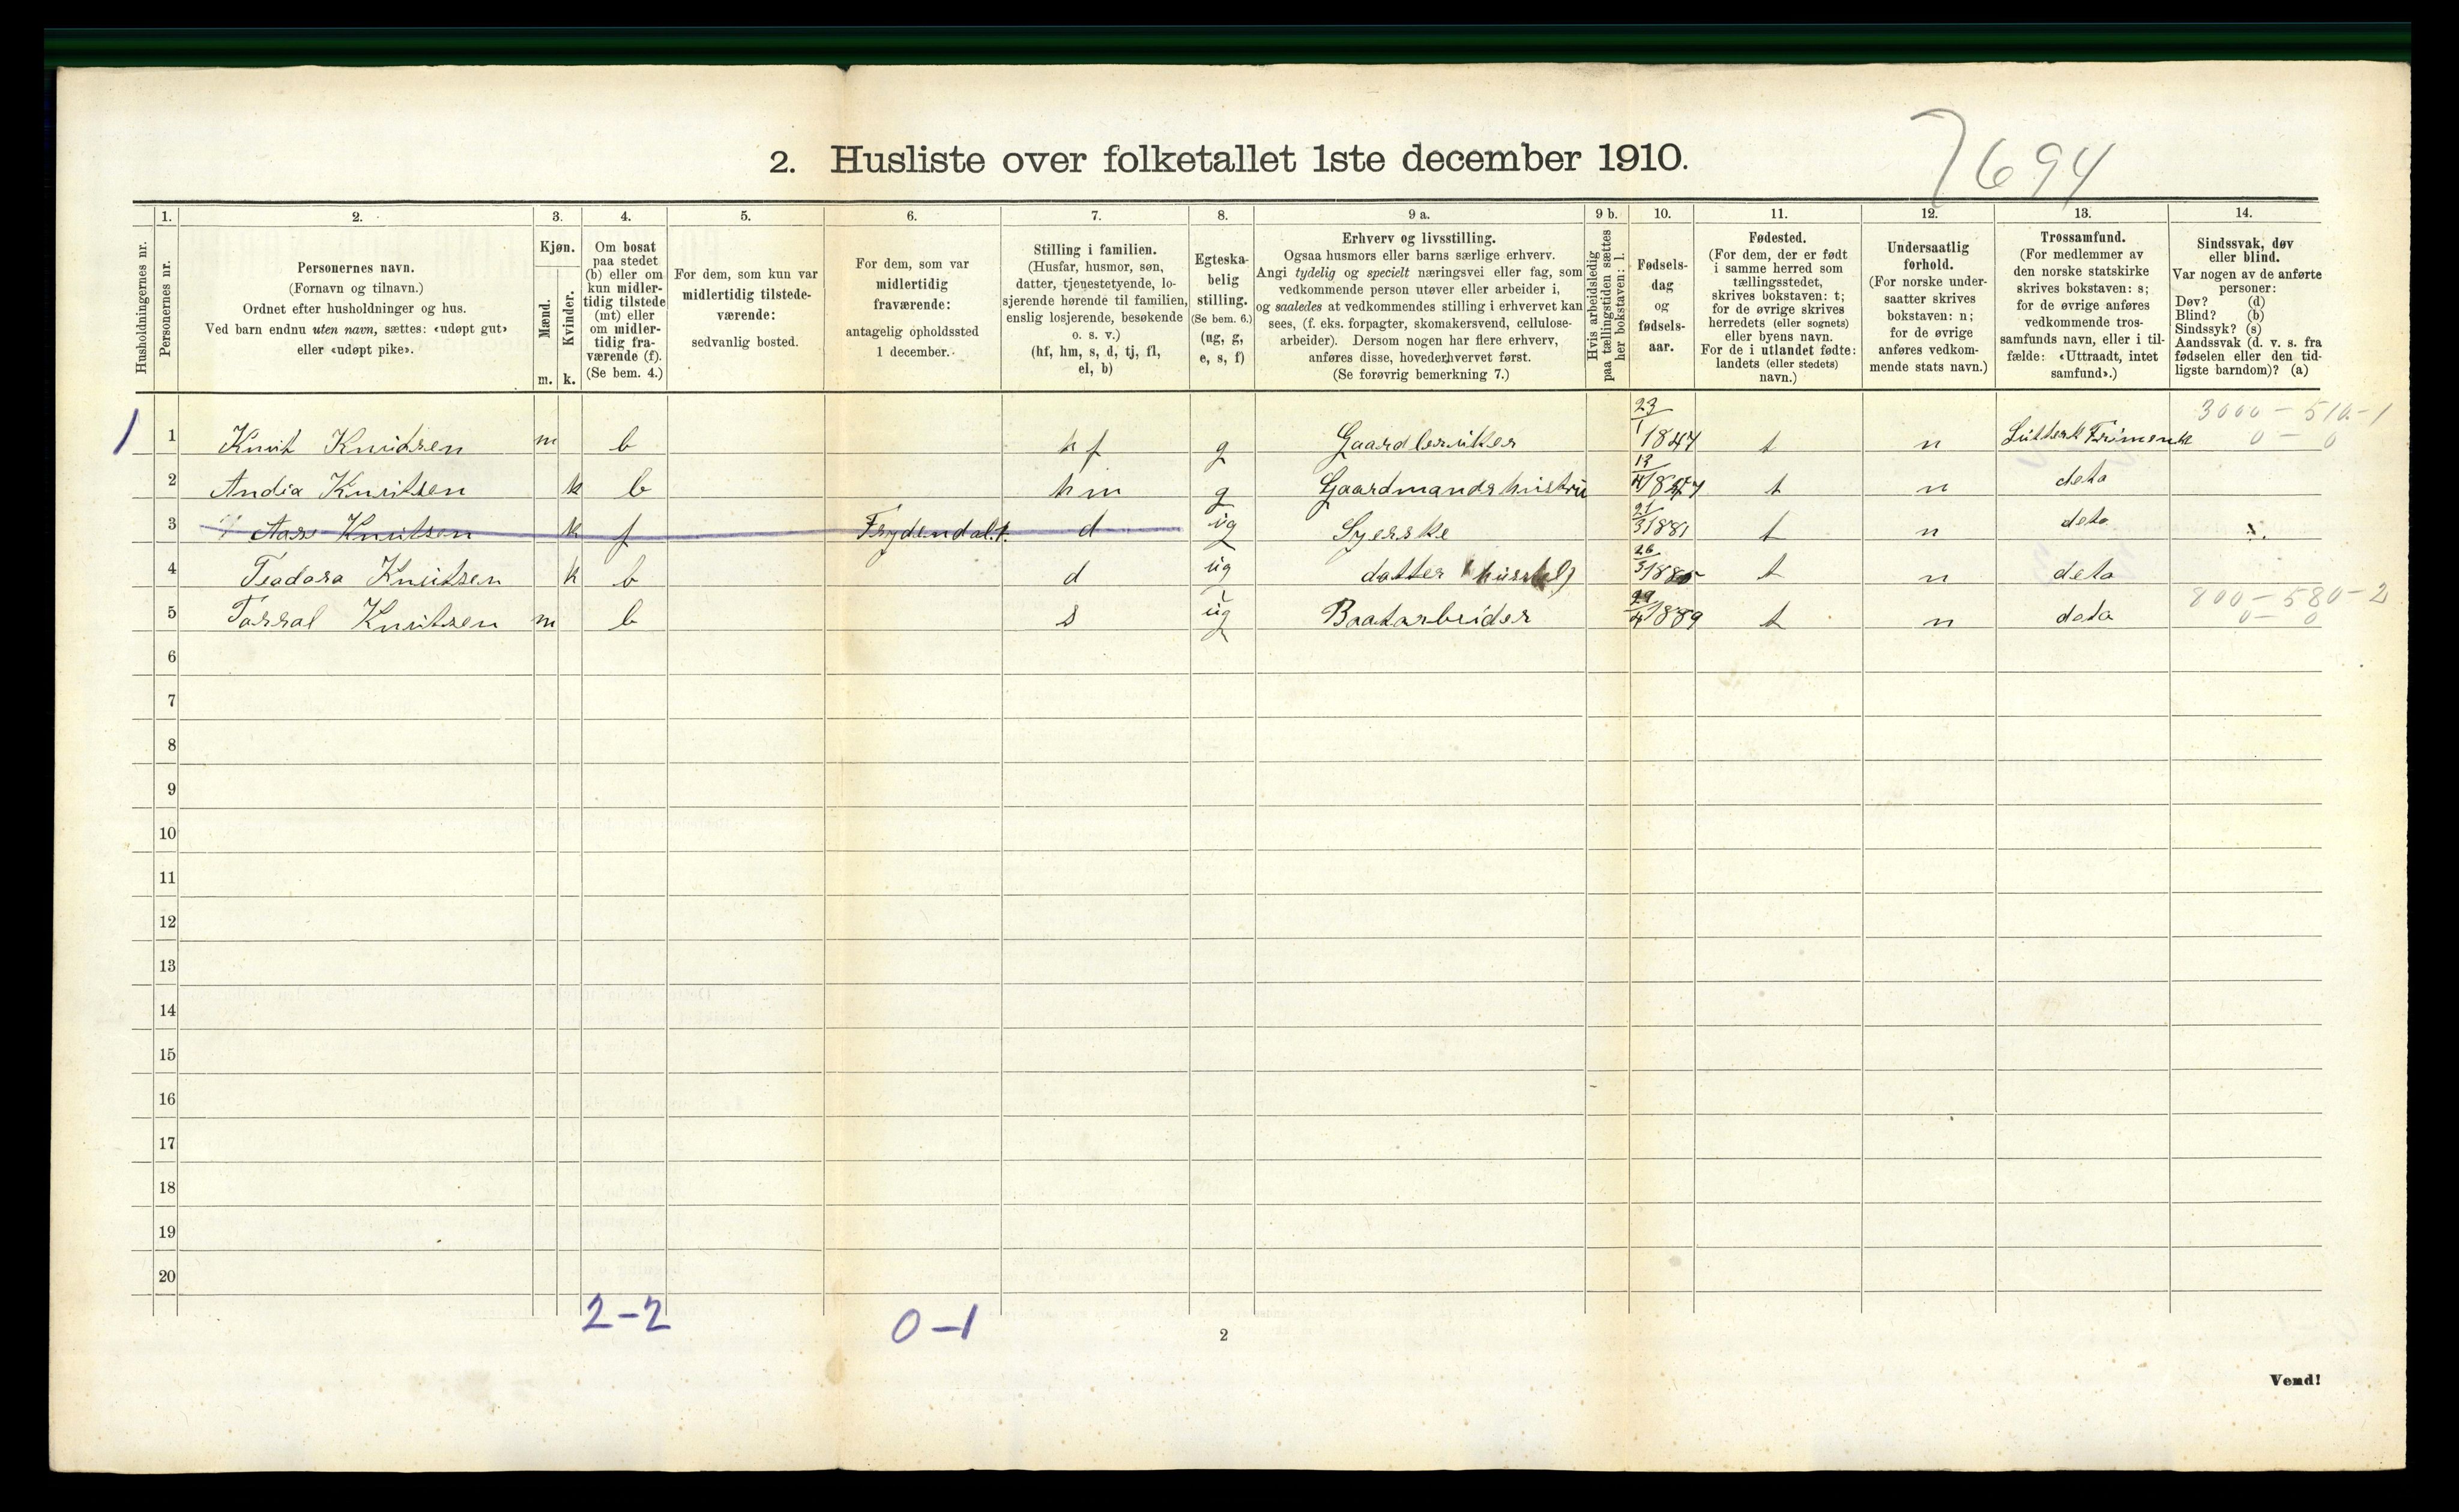 2. Husliste over folketallet 1ste december 1910.
7694
1. 2. 3. 4. 5. 6. 7. 8. 9 a. 9 b. 10. 11. 12. 13. 14.
Husholdningernes nr.
Personernes nr.
Personernes navn.
(Fornavn og tilnavn.)
Ordnet efter husholdninger og hus.
Ved barn endnu uten navn, sættes: «udøpt gut»
eller «udøpt pike».
Kjøn.
Mænd.
Kvinder.
m. k.
Om bosat
paa stedet
(b) eller om
kun midler-
tidig tilstede
(mt) eller
om midler-
tidig fra-
værende (f).
(Se bem. 4.)
For dem, som kun var
midlertidig tilstede-
værende:
sedvanlig bosted.
For dem, som var
midlertidig
fraværende:
antagelig opholdssted
1 december.
Stilling i familien.
(Husfar, husmor, søn,
datter, tjenestetyende, lo-
sjerende hørende til familien,
enslig losjerende, besøkende
o. s. v.)
(hf, hm, s, d, tj, fl,
el, b)
Egteska-
belig
stilling.
(Se bem. 6.)
(ug, g,
e, s, f)
Erhverv og livsstilling.
Ogsaa husmors eller barns særlige erhverv.
Angi tydelig og specielt næringsvei eller fag, som
vedkommende person utøver eller arbeider i,
og saaledes at vedkommendes stilling i erhvervet kan
sees, (f. eks. forpagter, skomakersvend, cellulose-
arbeider). Dersom nogen har flere erhverv,
anføres disse, hovederhvervet først.
(Se forøvrig bemerkning 7.)
Hvis arbeidsledig
paa tællingstiden sættes
her bokstaven: l.
Fødsels-
dag
og
fødsels-
aar.
Fødested.
(For dem, der er født
i samme herred som
tællingsstedet,
skrives bokstaven: t;
for de øvrige skrives
herredets (eller sognets)
eller byens navn.
For de i utlandet fødte:
landets (eller stedets)
navn.)
Undersaatlig
forhold.
(For norske under-
saatter skrives
bokstaven: n;
for de øvrige
anføres vedkom-
mende stats navn.)
Trossamfund.
(For medlemmer av
den norske statskirke
skrives bokstaven: s;
for de øvrige anføres
vedkommende tros-
samfunds navn, eller i til-
fælde: «Uttraadt, intet
samfund».)
Sindssvak, døv
eller blind.
Var nogen av de anførte
personer:
Døv? (d)
Blind? (b)
Sindssyk? (s)
Aandssvak (d. v. s. fra
fødselen eller den tid-
ligste barndom)? (a)
3000 - 510 - 1
0 - 0
1 1 Knut Knudsen m b hf g Gaardbruker 23/1 1847 t n
2 Andia Knutsen k b hm g Gaardmandshustru t n deto
3 Knutsen k f Frydendal t. d ug Syerske 21/3 1881 t n deto
4 Teadora Knutsen k b d ug datter (husstel) 26/5 t n deto
800 - 580 - 2
0 - 0
5 Torral Knutsen m b s ug Baatarbeider 1889 t n deto
6
7
8
9
10
11
12
13
14
15
16
17
18
19
20
2-2 0-1
2
Vend!